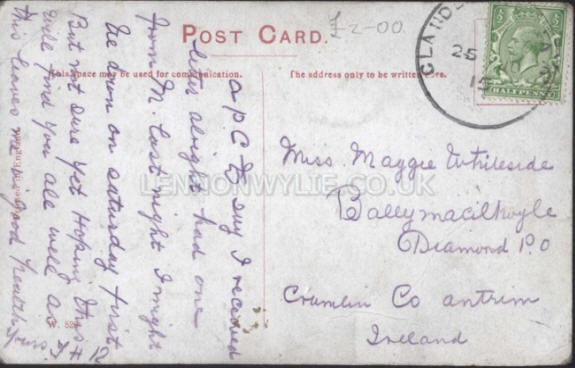 £2-00
POST CARD.
This space may be used for communication.
The address only to be written here.
HALFPENNY
a P C to say I received
letter alright had one
from M. last night I might
be down on saturday first
But not sure yet Hoping this
will find you all well as
this leaves me in good health
Miss Maggie Whiteside
Ballymacilhoyle
Diamond P.O
Crumlin Co antrim
Ireland
LENNONWYLIE.CO.UK